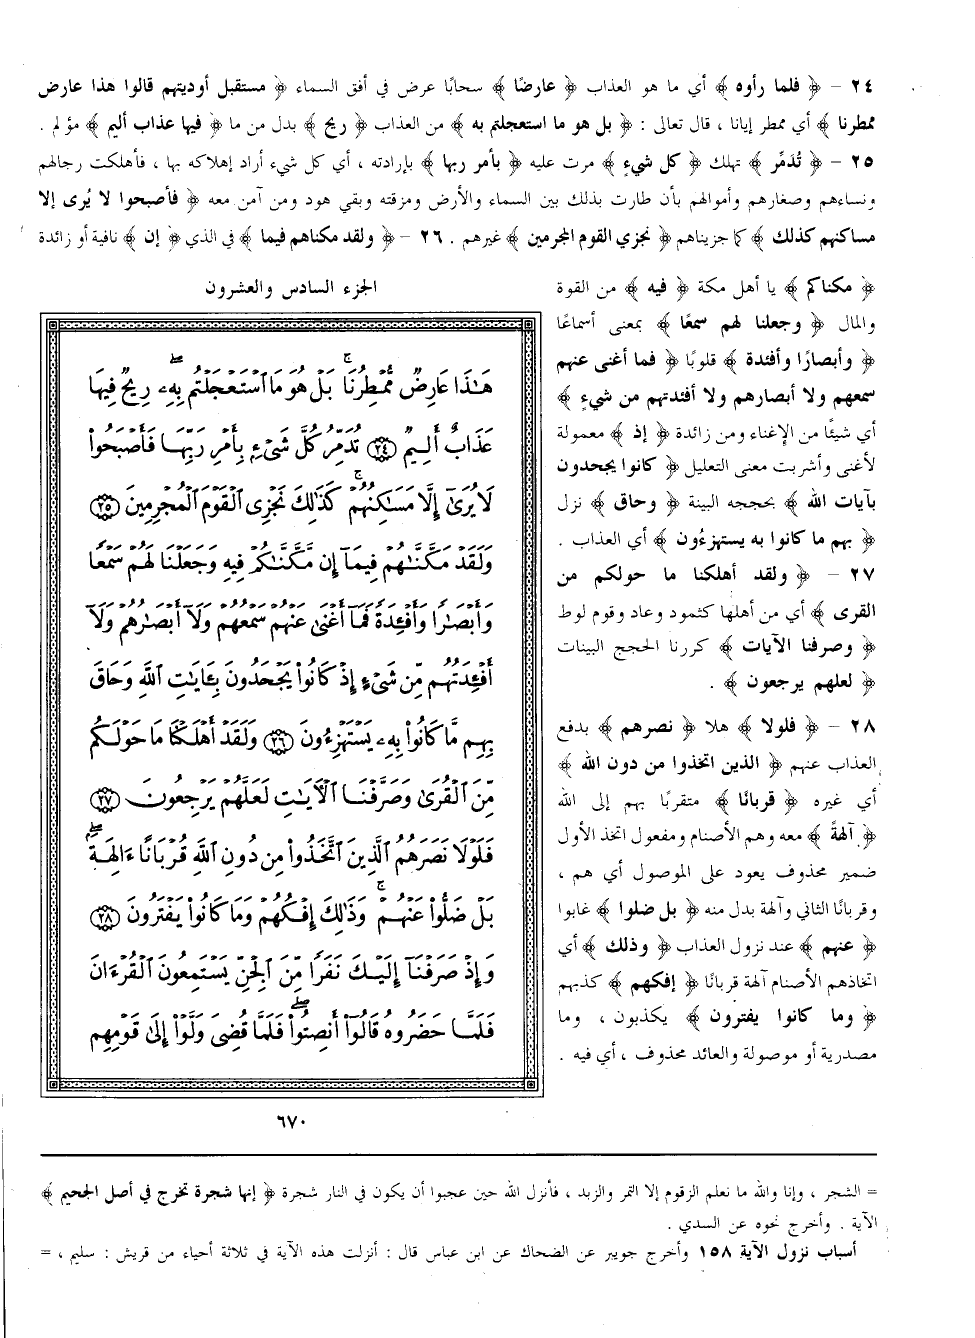 ٢٤ - ﴿ فلما رأوه ﴾ أي ما هو العذاب ﴿ عارضًا ﴾ سحابًا عرض في أفق السماء ﴿ مستقبل أوديتهم قالوا هذا عارض
ممطرنا ﴾ أي ممطر إيانا ، قال تعالى : ﴿ بل هو ما استعجلتم به ﴾ من العذاب ﴿ ريح ﴾ بدل من ما ﴿ فيها عذاب أليم ﴾ مؤلم .
٢٥ - ﴿ تُدَمِّر ﴾ تهلك ﴿ كل شيءٍ ﴾ مرت عليه ﴿ بأمر ربها ﴾ بإرادته ، أي كل شيء أراد إهلاكه بها ، فأهلكت رجالهم
ونساءهم وصغارهم وأموالهم بأن طارت بذلك بين السماء والأرض ومزقته وبقي هود ومن آمن معه ﴿ فأصبحوا لا يُرى إلا
مساكنهم كذلك ﴾ كما جزيناهم ﴿ نجزي القوم المجرمين ﴾ غيرهم . ٢٦ - ﴿ ولقد مكناهم فيما ﴾ في الذي ﴿ إن ﴾ نافية أو زائدة
﴿ مكناكم ﴾ يا أهل مكة ﴿ فيه ﴾ من القوة
والمال ﴿ وجعلنا لهم سمعًا ﴾ بمعنى أسماعًا
﴿ وأبصارًا وأفئدة ﴾ قلوبًا ﴿ فما أغنى عنهم
سمعهم ولا أبصارهم ولا أفئدتهم من شيءٍ ﴾
أي شيئًا من الإغناء ومن زائدة ﴿ إذ ﴾ معمولة
لأغنى وأشربت معنى التعليل ﴿ كانوا يجحدون
بآيات الله ﴾ بحججه البينة ﴿ وحاق ﴾ نزل
﴿ بهم ما كانوا به يستهزءُون ﴾ أي العذاب .
٢٧ - ﴿ ولقد أهلكنا ما حولكم من
القرى ﴾ أي من أهلها كثمود وعاد وقوم لوط
﴿ وصرفنا الآيات ﴾ كررنا الحجج البينات
﴿ لعلهم يرجعون ﴾ .
٢٨ - ﴿ فلولا ﴾ هلا ﴿ نصرهم ﴾ بدفع
العذاب عنهم ﴿ الذين اتخذوا من دون الله ﴾
أي غيره ﴿ قربانًا ﴾ متقربًا بهم إلى الله
﴿ آلهةً ﴾ معه وهم الأصنام ومفعول اتخذ الأول
ضمير محذوف يعود على الموصول أي هم ،
وقربانًا الثاني وآلهة بدل منه ﴿ بل ضلوا ﴾ غابوا
﴿ عنهم ﴾ عند نزول العذاب ﴿ وذلك ﴾ أي
اتخاذهم الأصنام آلهة قربانًا ﴿ إفكهم ﴾ كذبهم
﴿ وما كانوا يفترون ﴾ يكذبون ، وما
مصدرية أو موصولة والعائد محذوف ، أي فيه .
الجزء السادس والعشرون
هَٰذَا عَارِضٌ مُّمْطِرُنَا ۚ بَلْ هُوَ مَا ٱسْتَعْجَلْتُم بِهِۦ ۖ رِيحٌ فِيهَا
عَذَابٌ أَلِيمٌ ﴿٢٤﴾ تُدَمِّرُ كُلَّ شَىْءٍۭ بِأَمْرِ رَبِّهَا فَأَصْبَحُوا۟
لَا يُرَىٰٓ إِلَّا مَسَٰكِنُهُمْ ۚ كَذَٰلِكَ نَجْزِى ٱلْقَوْمَ ٱلْمُجْرِمِينَ ﴿٢٥﴾
وَلَقَدْ مَكَّنَّٰهُمْ فِيمَآ إِن مَّكَّنَّٰكُمْ فِيهِ وَجَعَلْنَا لَهُمْ سَمْعًا
وَأَبْصَٰرًا وَأَفْـِٔدَةً فَمَآ أَغْنَىٰ عَنْهُمْ سَمْعُهُمْ وَلَآ أَبْصَٰرُهُمْ وَلَآ
أَفْـِٔدَتُهُم مِّن شَىْءٍ إِذْ كَانُوا۟ يَجْحَدُونَ بِـَٔايَٰتِ ٱللَّهِ وَحَاقَ
بِهِم مَّا كَانُوا۟ بِهِۦ يَسْتَهْزِءُونَ ﴿٢٦﴾ وَلَقَدْ أَهْلَكْنَا مَا حَوْلَكُم
مِّنَ ٱلْقُرَىٰ وَصَرَّفْنَا ٱلْـَٔايَٰتِ لَعَلَّهُمْ يَرْجِعُونَ ﴿٢٧﴾
فَلَوْلَا نَصَرَهُمُ ٱلَّذِينَ ٱتَّخَذُوا۟ مِن دُونِ ٱللَّهِ قُرْبَانًا ءَالِهَةًۢ ۖ
بَلْ ضَلُّوا۟ عَنْهُمْ ۚ وَذَٰلِكَ إِفْكُهُمْ وَمَا كَانُوا۟ يَفْتَرُونَ ﴿٢٨﴾
وَإِذْ صَرَفْنَآ إِلَيْكَ نَفَرًا مِّنَ ٱلْجِنِّ يَسْتَمِعُونَ ٱلْقُرْءَانَ
فَلَمَّا حَضَرُوهُ قَالُوٓا۟ أَنصِتُوا۟ ۖ فَلَمَّا قُضِىَ وَلَّوْا۟ إِلَىٰ قَوْمِهِم
٦٧٠
= الشجر ، وإنا والله ما نعلم الزقوم إلا التمر والزبد ، فأنزل الله حين عجبوا أن يكون في النار شجرة ﴿ إنها شجرة تخرج في أصل الجحيم ﴾
الآية . وأخرج نحوه عن السدي .
أسباب نزول الآية ١٥٨ وأخرج جويبر عن الضحاك عن ابن عباس قال : أنزلت هذه الآية في ثلاثة أحياء من قريش : سليم ، =